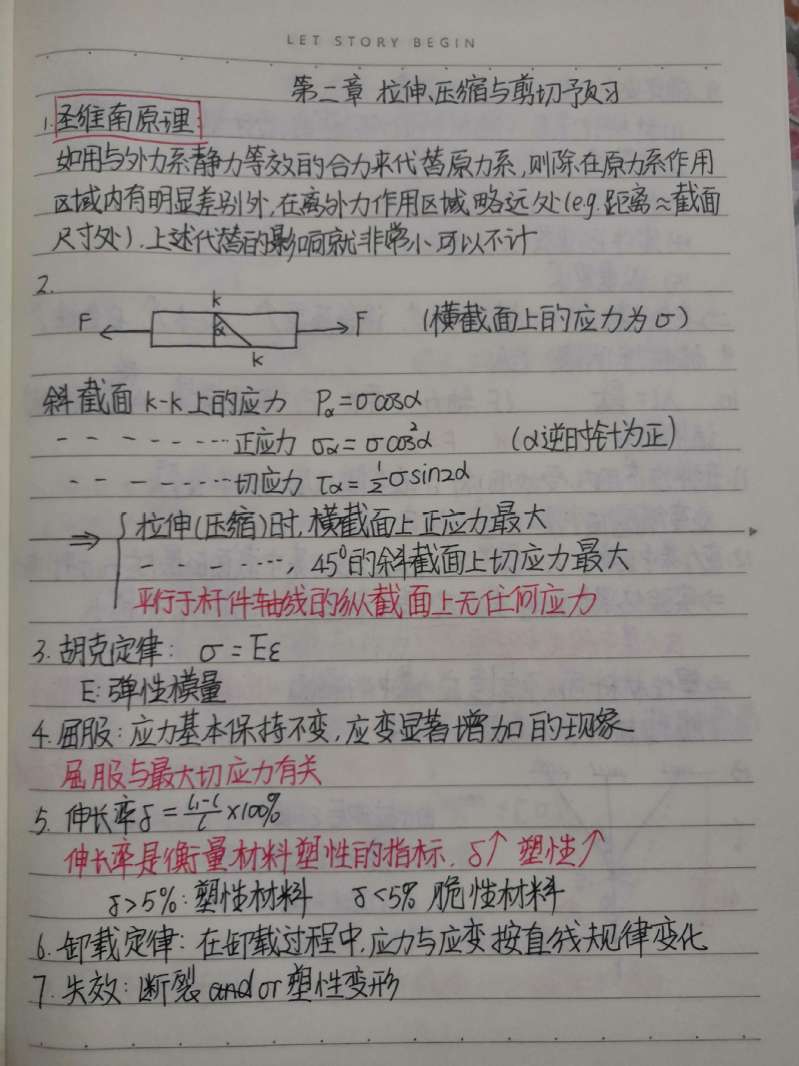 LET STORY BEGIN
第二章 拉伸、压缩与剪切预习
1. 圣维南原理:
如用与外力系静力等效的合力来代替原力系,则除在原力系作用
区域内有明显差别外,在离外力作用区域略远处(e.g.距离≈截面
尺寸处),上述代替的影响就非常小可以不计
2.
k
F F (横截面上的应力为σ)
α
k
斜截面 k-k 上的应力 Pα=σcosα
- - - - ······ 正应力 σα=σcos²α (α逆时针为正)
- - - - ······ 切应力 τα=½σsin2α
⇒ { 拉伸(压缩)时,横截面上正应力最大
- - - - ······, 45°的斜截面上切应力最大
平行于杆件轴线的纵截面上无任何应力
3. 胡克定律: σ=Eε
E: 弹性模量
4. 屈服: 应力基本保持不变,应变显著增加的现象
屈服与最大切应力有关
5. 伸长率δ=(l₁-l)/l×100%
伸长率是衡量材料塑性的指标. δ↑ 塑性↑
δ>5%: 塑性材料 δ<5% 脆性材料
6. 卸载定律: 在卸载过程中,应力与应变按直线规律变化
7. 失效: 断裂 and or 塑性变形